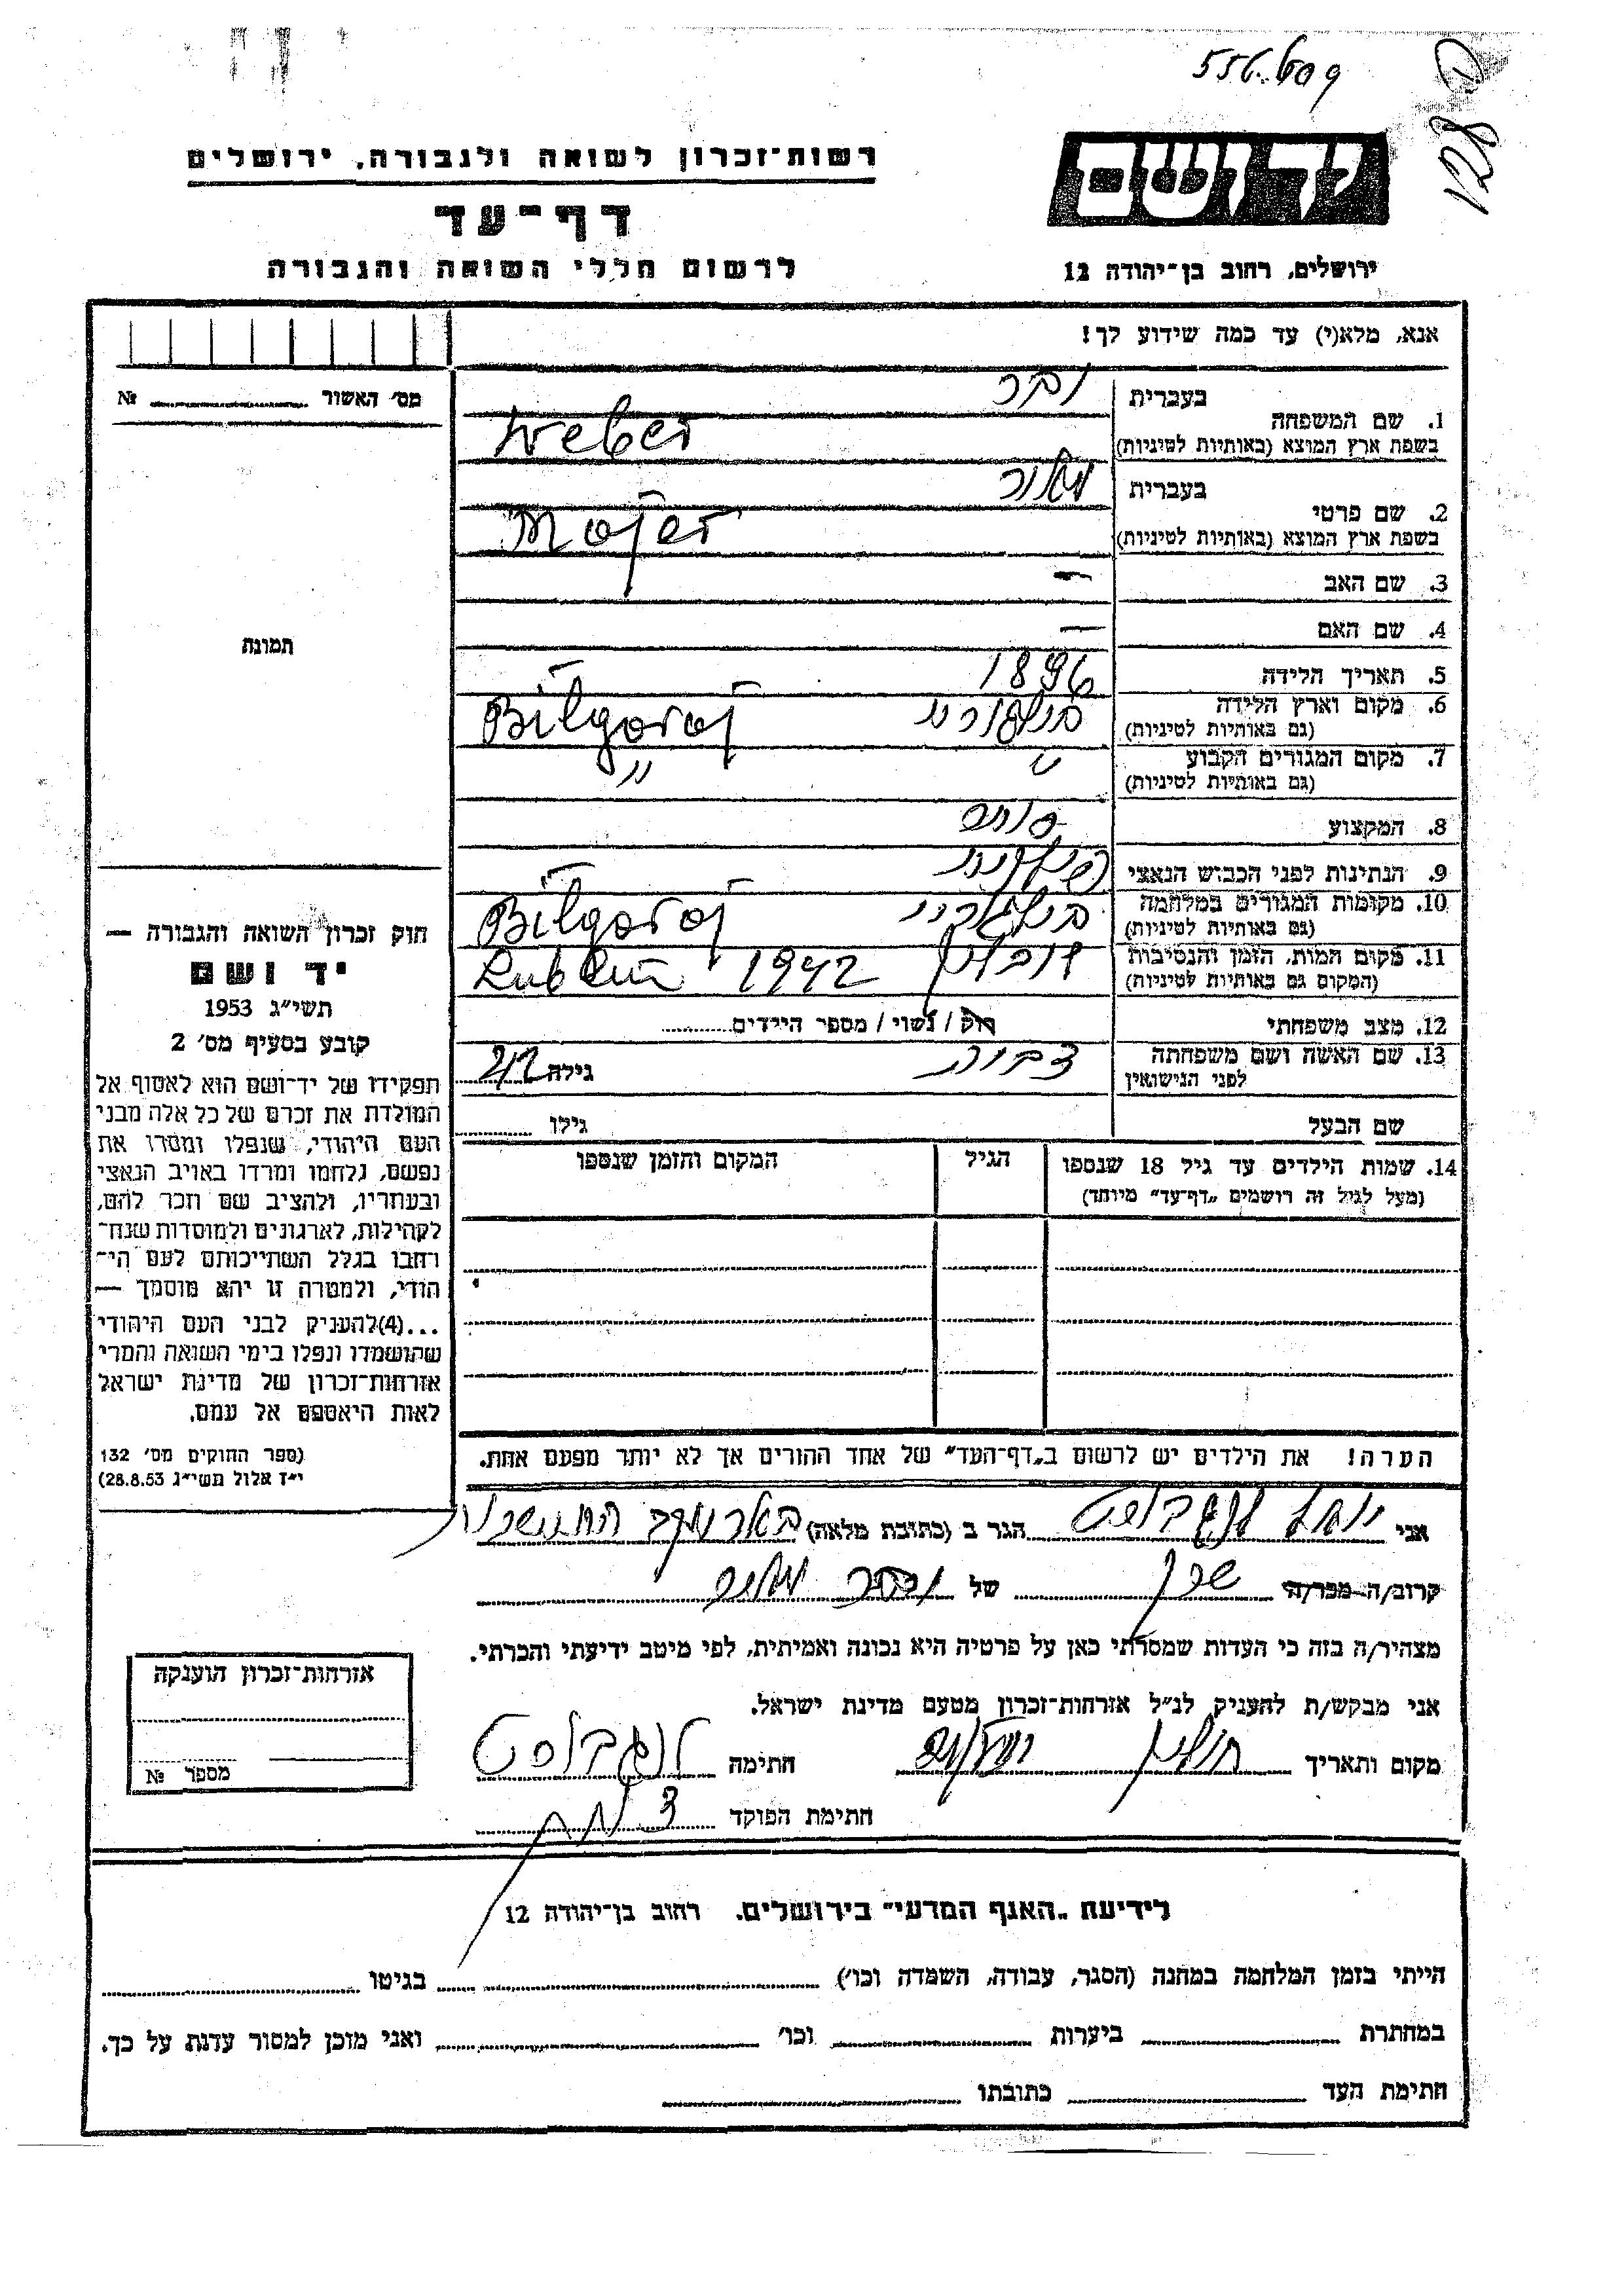 רשות־זכרון לשואה ולגבורה, ירושלים
דף־עד
לרשום חללי השואה והגבורה
יד ושם
ירושלים, רחוב בן־יהודה 12
אנא, מלא(י) עד כמה שידוע לך!
מס' האשור ........ №
1. שם המשפחה
בעברית ובר
בשפת ארץ המוצא (באותיות לטיניות) Weber
2. שם פרטי
בעברית מאיר
בשפת ארץ המוצא (באותיות לטיניות) Majer
3. שם האב —
4. שם האם —
5. תאריך הלידה 1896
6. מקום וארץ הלידה
(גם באותיות לטיניות) בילגוריי Bilgoraj
7. מקום המגורים הקבוע
(גם באותיות לטיניות) " "
8. המקצוע סוחר
9. הנתינות לפני הכבוש הנאצי פולנית
10. מקומות המגורים במלחמה
(גם באותיות לטיניות) בילגוריי Bilgoraj
11. מקום המות, הזמן והנסיבות
(המקום גם באותיות לטיניות) לובלין Lublin 1942
12. מצב משפחתי רוק / נשוי / מספר הילדים........
13. שם האשה ושם משפחתה
לפני הנישואין
גילה
שם הבעל גילו ........
14. שמות הילדים עד גיל 18 שנספו
(מעל לגיל זה רושמים „דף־עד" מיוחד)
הגיל
המקום והזמן שנספו
הערה! את הילדים יש לרשום ב„דף־העד" של אחד ההורים אך לא יותר מפעם אחת.
תמונת
חוק זכרון השואה והגבורה —
יד ושם
תשי"ג 1953
קובע בסעיף מס' 2
תפקידו של יד־ושם הוא לאסוף אל
המולדת את זכרם של כל אלה מבני
העם היהודי, שנפלו ומסרו את
נפשם, נלחמו ומרדו באויב הנאצי
ובעוזריו, ולהציב שם וזכר להם,
לקהילות, לארגונים ולמוסדות שנח־
רבו בגלל השתייכותם לעם הי־
הודי, ולמטרה זו יהא מוסמך —
...(4)להעניק לבני העם היהודי
שהושמדו ונפלו בימי השואה והמרי
אזרחות־זכרון של מדינת ישראל
לאות היאספם אל עמם.
(ספר החוקים מס' 132
י"ז אלול תשי"ג 28.8.53)
אני הגר ב (כתובת מלאה) באר יעקב
קרוב/ה מכר/ה שכן של ובר מאיר
מצהיר/ה בזה כי העדות שמסרתי כאן על פרטיה היא נכונה ואמיתית, לפי מיטב ידיעתי והכרתי.
אני מבקש/ת להעניק לנ"ל אזרחות־זכרון מטעם מדינת ישראל.
מקום ותאריך חתימה
חתימת הפוקד
אזרחות־זכרון הוענקה
מספר №
לידיעת „האגף המדעי" בירושלים. רחוב בן־יהודה 12
הייתי בזמן המלחמה במחנה (הסגר, עבודה, השמדה וכו') ........ בגיטו ........
במחתרת ........ ביערות ........ וכו' ........ ואני מוכן למסור עדות על כך.
חתימת העד ........ כתובתו ........